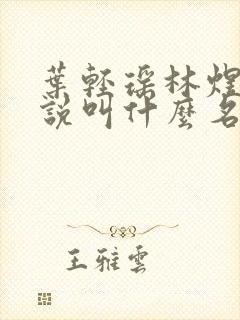 葉輕瑤林煌
說叫什麼名
王雅雲